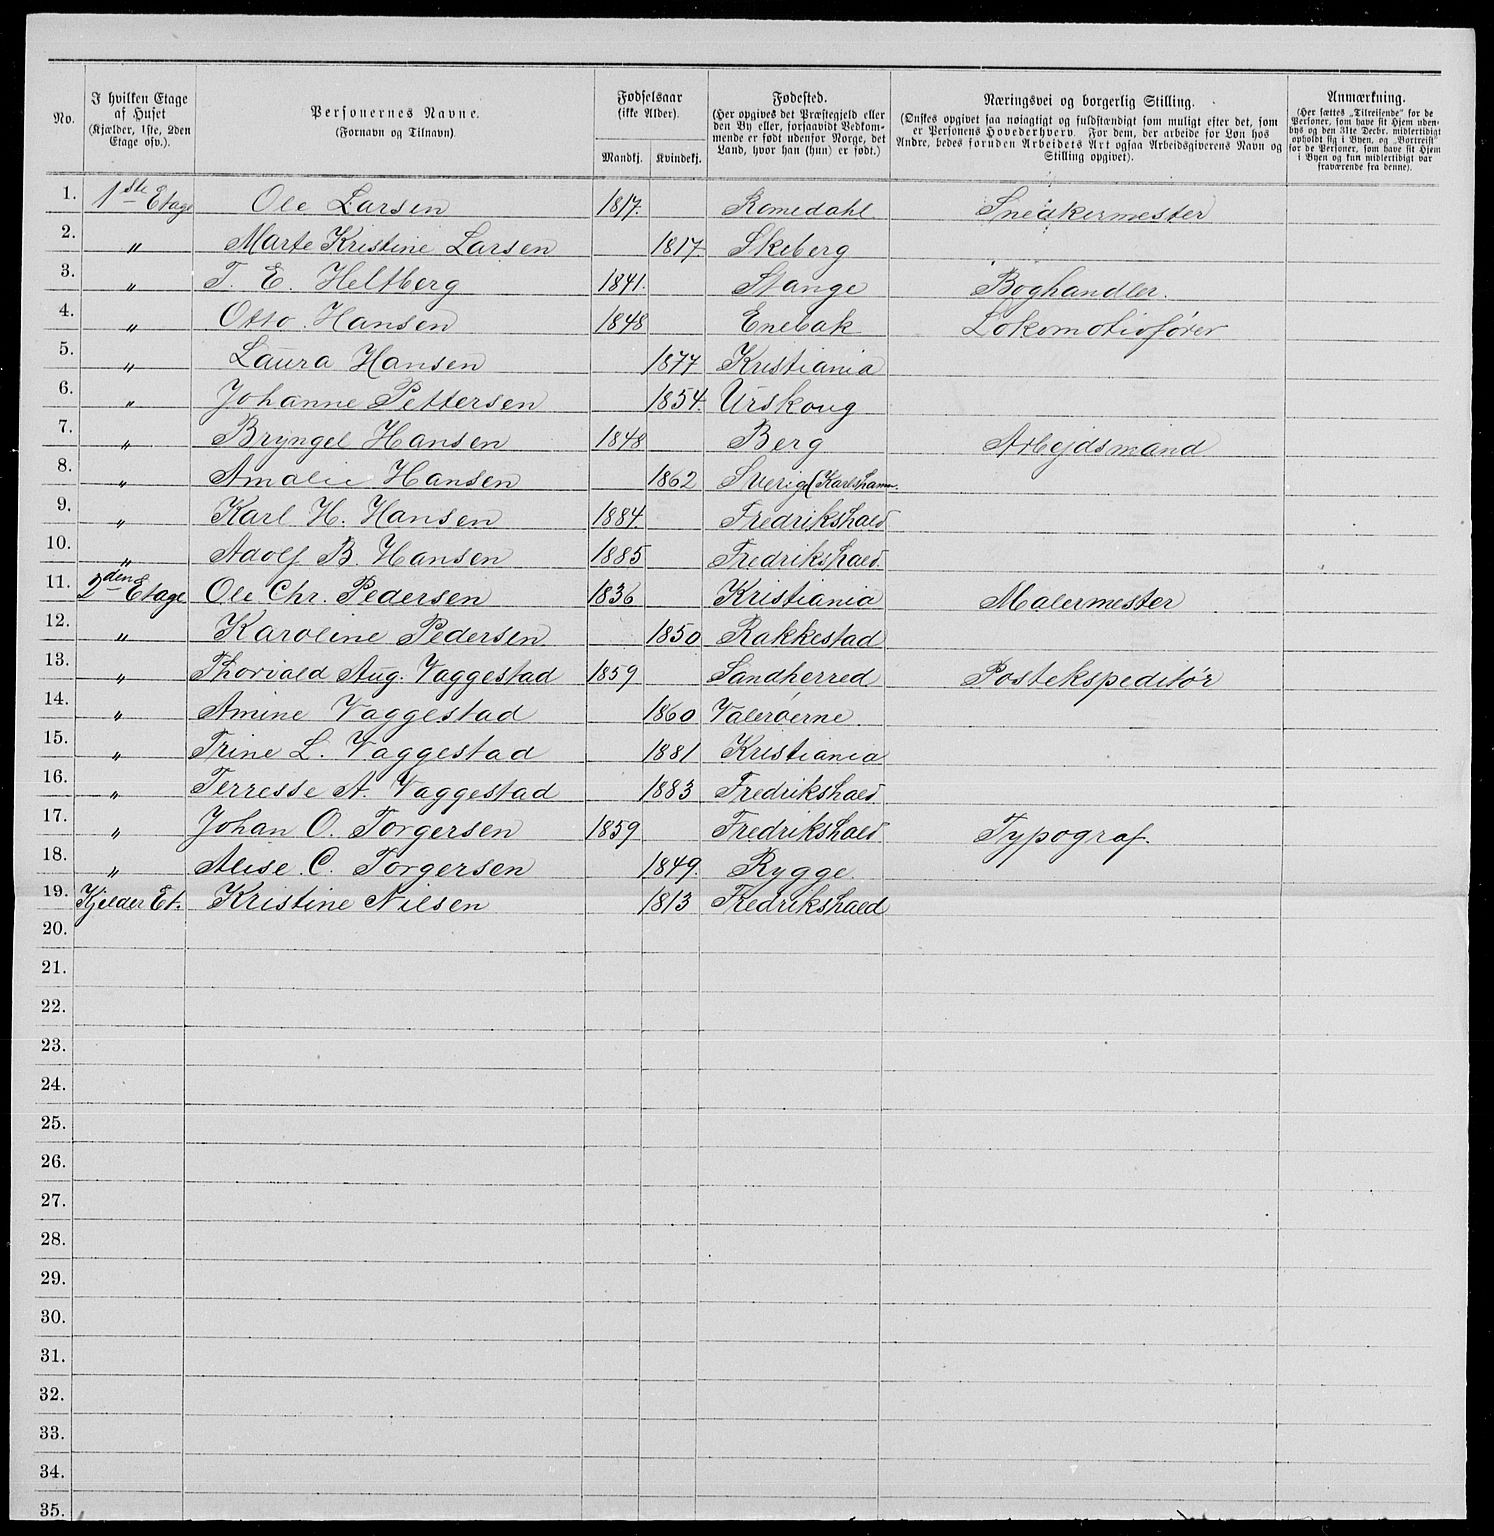 No. | I hvilken Etage af Huset (Kjælder, 1ste, 2den Etage osv.). | Personernes Navne. (Fornavn og Tilnavn). | Fødselsaar (ikke Alder). Mandkj. | Kvindekj. | Fødested. (Her opgives det Præstegjeld eller den By eller, forsaavidt Vedkommende er født udenfor Norge, det Land, hvor han (hun) er født.) | Næringsvei og borgerlig Stilling. (Ønskes opgivet saa nøiagtigt og fuldstændigt som muligt efter det, som er Personens Hovederhverv. For dem, der arbeide for Løn hos Andre, bedes foruden Arbeidets Art ogsaa Arbeidsgiverens Navn og Stilling opgivet). | Anmærkning. (Her sættes „Tilreisende“ for de Personer, som have sit Hjem udenbys og den 31te Decbr. midlertidigt opholdt sig i Byen, og „Bortreist“ for de Personer, som have sit Hjem i Byen og kun midlertidigt var fraværende fra denne).
1. | 1ste Etage | Ole Larsen | 1817. | | Romedahl | Snedkermester
2. | " | Marte Kristine Larsen | | 1817. | Skeberg
3. | " | T. E. Heltberg | 1841. | | Stange | Boghandler.
4. | " | Otto Hansen | 1848 | | Enebak | Lokomotivfører
5. | " | Laura Hansen | | 1877 | Kristiania
6. | " | Johanne Pettersen | | 1854. | Urskoug
7. | " | Bryngel Hansen | 1848 | | Berg | Arbejdsmand
8. | " | Amalie Hansen | | 1862 | Sverige (Karlshamn.
9. | " | Karl H. Hansen | 1884. | | Fredrikshald
10. | " | Adolf B. Hansen | 1885 | | Fredrikshald.
11. | 2den Etage | Ole Chr. Pedersen | 1836 | | Kristiania | Malermester
12. | " | Karoline Pedersen. | | 1850 | Rakkestad
13. | " | Thorvald Aug. Vaggestad | 1859 | | Sandherred | Postekspeditør
14. | " | Amine Vaggestad | | 1860 | Valerøerne
15. | " | Trine L. Vaggestad | | 1881 | Kristiania
16. | " | Terresse A. Vaggestad | | 1883 | Fredrikshald.
17. | " | Johan O. Torgersen | 1859 | | Fredrikshald | Typograf.
18. | " | Alise C. Torgersen | | 1849. | Rygge
19. | Kjelder Et. | Kristine Nilsen | | 1813 | Fredrikshald
20.
21.
22.
23.
24.
25.
26.
27.
28.
29.
30.
31.
32.
33.
34.
35.